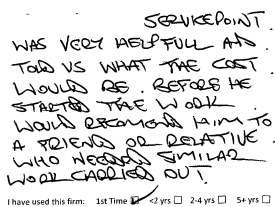 SERVICEPOINT.
WAS VERY HELPFULL AND
TOLD US WHAT THE COST
WOULD BE. BEFORE HE
STARTED THE WORK.
WOULD RECOMEND HIM TO
A FRIEND OR RELATIVE.
WHO NEEDED SIMILAR
WORK CARRIED OUT!
I have used this firm: 1st Time ☑ <2 yrs ☐ 2-4 yrs ☐ 5+ yrs ☐